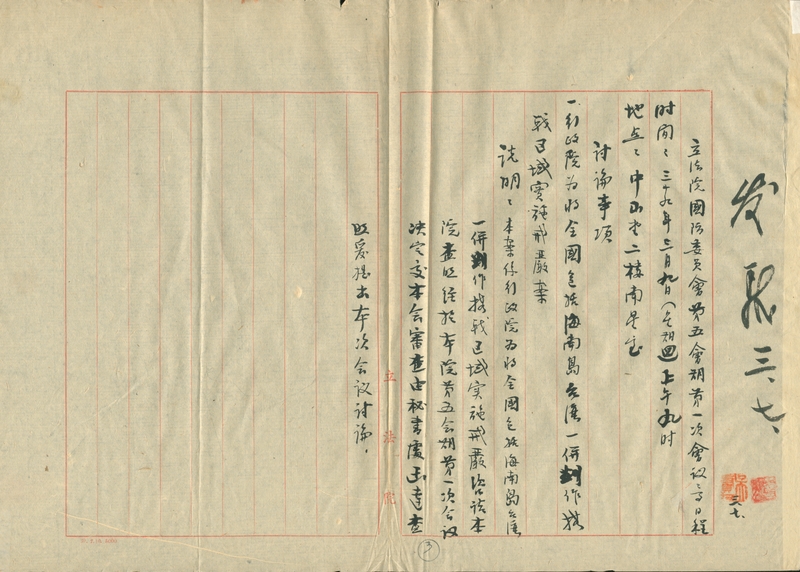 立法院國防委員會第五會期第一次會议议事日程
时间：三十九年三月九日（星期四）上午九时
地点：中山堂二楼南星室
討論事項
一、行政院为将全國包括海南島台湾一併劃作接
戰区域实施戒嚴案
说明：本案係行政院为将全國包括海南島台湾
一併劃作接战区域实施戒嚴咨请本
院查照经於本院第五会期第一次会议
决定交本会審查由秘書處函達查
照爰提出本次会议討論。
发
三、七、
三、七、
立法院
3